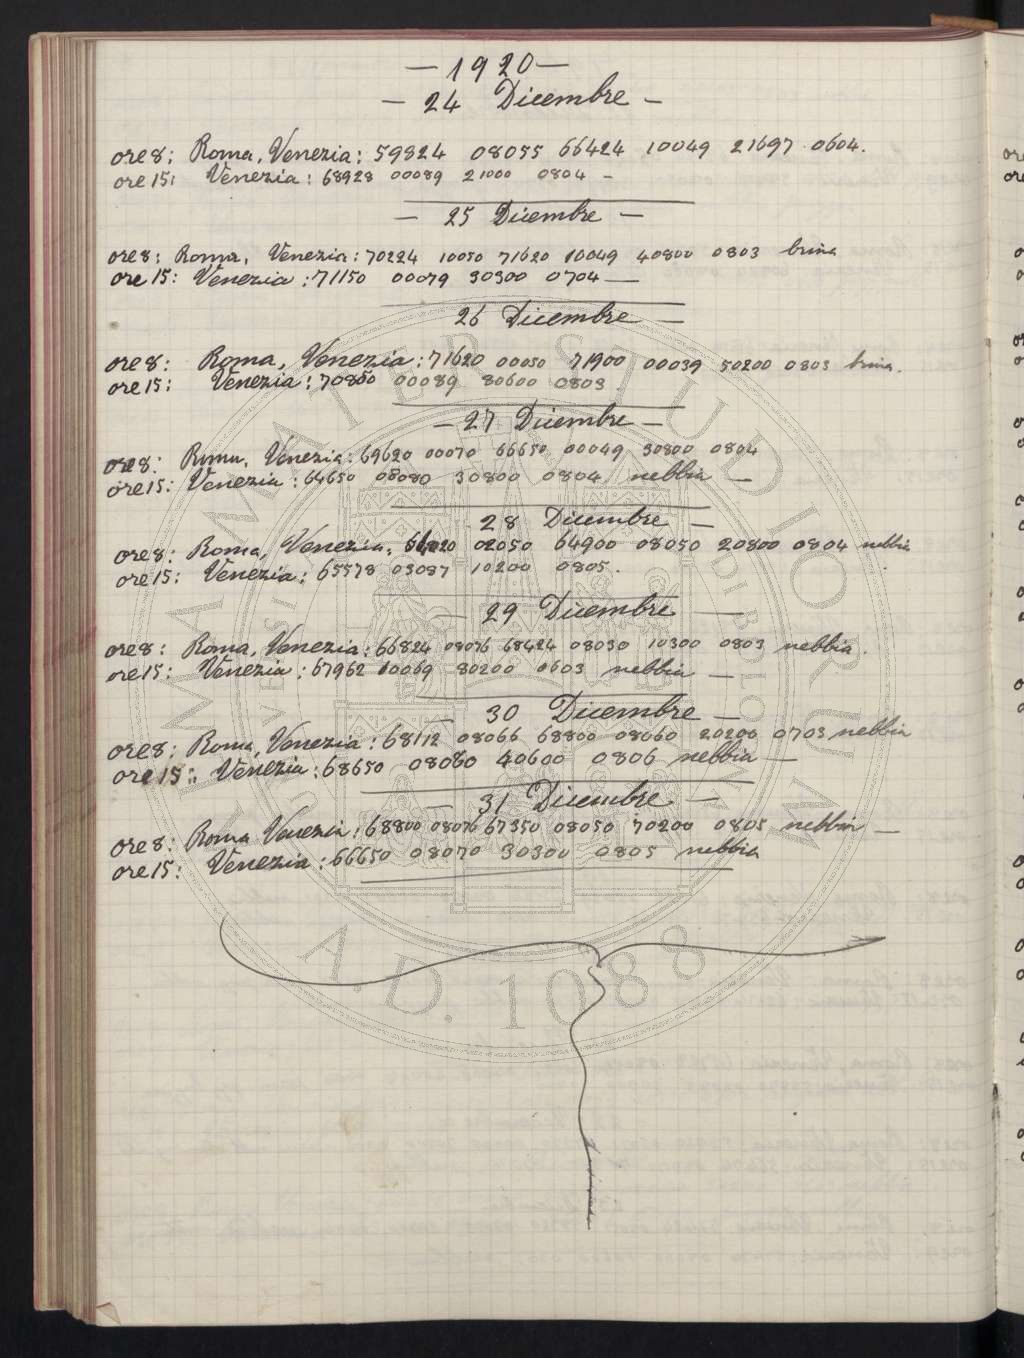 — 1920 —
— 24 Dicembre —
ore 8: Roma, Venezia: 59824 08055 66424 10049 21697 0604.
ore 15: Venezia: 68928 00089 21000 0804 —
— 25 Dicembre —
ore 8: Roma, Venezia: 70224 10050 71620 10049 40800 0803 brina
ore 15: Venezia: 71150 00079 30300 0704 —
26 Dicembre —
ore 8: Roma, Venezia: 71620 00050 71900 00039 50200 0803 brina.
ore 15: Venezia: 70850 00089 80600 0803.
— 27 Dicembre —
ore 8: Roma, Venezia: 69620 00070 66650 00049 30800 0804
ore 15: Venezia: 64650 08080 30800 0804 nebbia —
28 Dicembre —
ore 8: Roma, Venezia: 02050 64900 08050 20800 0804 nebbia
ore 15: Venezia: 65578 03087 10200 0805.
— 29 Dicembre —
ore 8: Roma, Venezia: 66824 08076 68424 08030 10300 0803 nebbia.
ore 15: Venezia: 67962 10069 80200 0603 nebbia —
— 30 Dicembre —
ore 8: Roma, Venezia: 68112 08066 68800 08060 20200 0703 nebbia
ore 15: Venezia: 68650 08060 40600 0806 nebbia —
— 31 Dicembre —
ore 8: Roma Venezia: 68800 08076 67350 08050 70200 0805 nebbia —
ore 15: Venezia: 66650 08070 30300 0805 nebbia
ALMA MATER STUDIORUM
A.D. 1088